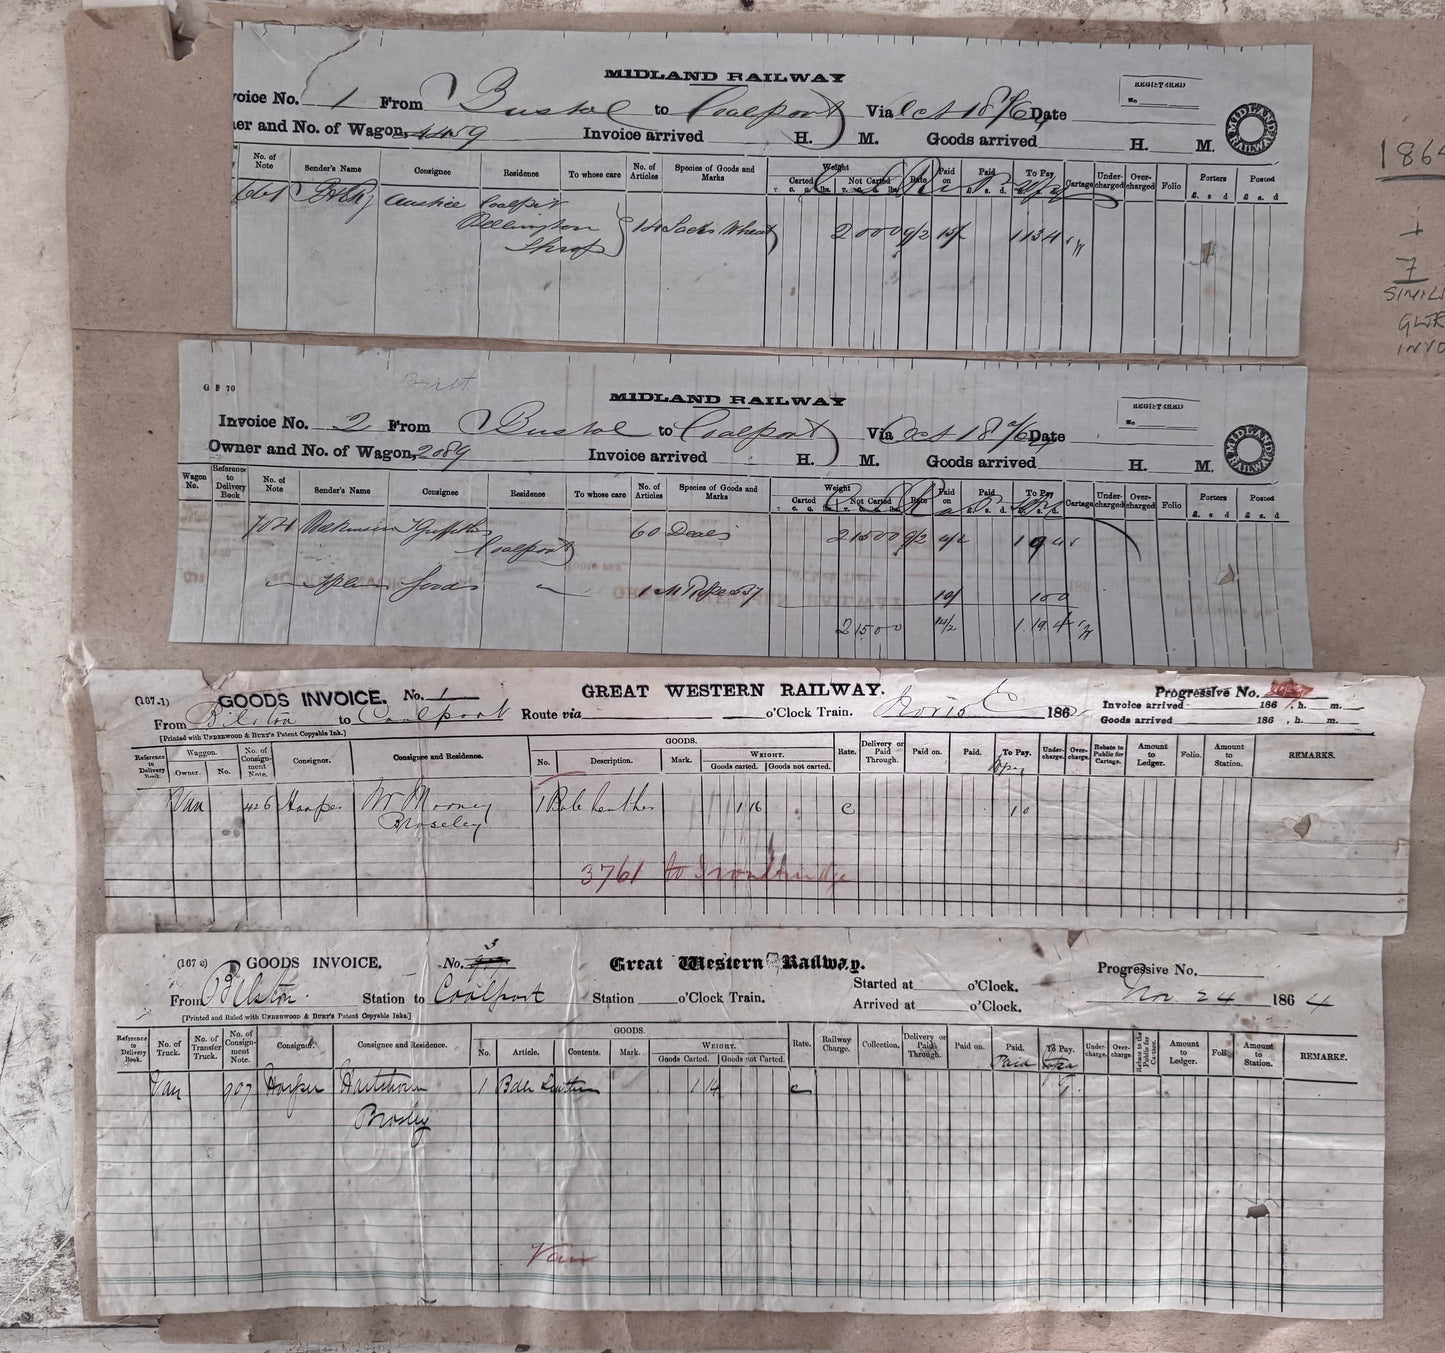 MIDLAND RAILWAY
REGISTERED
No.
voice No. 1 From Bristol to Coalport Via Oct 18 /64 Date
MIDLAND RAILWAY
er and No. of Wagon, 59 Invoice arrived H. M. Goods arrived H. M.
No. of Note Sender's Name Consignee Residence To whose care No. of Articles Species of Goods and Marks Weight Carted T. C. Q. lbs. Not Carted T. C. Q. lbs. Rate Paid on Paid £ s d To Pay £ s d Cartage Under-charged Over-charged Folio Porters £. s d Posted £. s d
661 Coalport
Wellington
Salop
14 Sacks Wheat 2 0 0 0 9/2 15/ 1 13 4
1864
+
7
SIMIL
GWR
INVO
G F 70
MIDLAND RAILWAY
REGISTERED
No.
Invoice No. 2 From Bristol to Coalport Via Oct 18 /64 Date
MIDLAND RAILWAY
Owner and No. of Wagon, 2089 Invoice arrived H. M. Goods arrived H. M.
Wagon No. Reference to Delivery Book No. of Note Sender's Name Consignee Residence To whose care No. of Articles Species of Goods and Marks Weight Carted T. C. Q. lbs. Not Carted T. C. Q. lbs. Rate Paid on Paid £ s d To Pay £ s d Cartage Under-charged Over-charged Folio Porters £. s d Posted £. s d
704 Griffiths 60 Deals 2 15 0 0 9/2 4/2
Coalport
Goods 1 10/ 10 0
2 15 0 0 14/2 1. 19. 4
(107.1) GOODS INVOICE. No. 1 GREAT WESTERN RAILWAY. Progressive No.
From Bilston to Coalport Route via o'Clock Train. Nov 15 186
Invoice arrived 186 , h. m.
Goods arrived 186 , h. m.
[Printed with UNDERWOOD & BURT'S Patent Copyable Ink.]
Reference to Delivery Book. Waggon. Owner. No. No. of Consignment Note. Consignor. Consignee and Residence. GOODS. No. Description. Mark. WEIGHT. Goods carted. Goods not carted. Rate. Delivery or Paid Through. Paid on. Paid. To Pay. Under-charge. Over-charge. Rebate to Public for Cartage. Amount to Ledger. Folio. Amount to Station. REMARKS.
Van 426 Harper Wm Mooney 1 Bale Leather 1 16 C 1 0
Broseley
3761 to Ironbridge
(167 c) GOODS INVOICE. No. 3 Great Western Railway. Progressive No.
From Bilston Station to Coalport Station o'Clock Train. Started at o'Clock. Nov 24 1864
Arrived at o'Clock.
[Printed and Ruled with UNDERWOOD & BURT'S Patent Copyable Inks.]
Reference to Delivery Book. No. of Truck. No. of Transfer Truck. No. of Consignment Note. Consignor. Consignee and Residence. GOODS. No. Article. Contents. Mark. WEIGHT. Goods Carted. Goods not Carted. Rate. Railway Charge. Collection. Delivery or Paid Through. Paid on. Paid. To Pay. Under-charge. Over-charge. Rebate to the Public for Cartage. Amount to Ledger. Foli. Amount to Station. REMARKS.
Paid
Van 907 Harper Hartshorn 1 Bale Leather 1 14 C
Broseley
Van